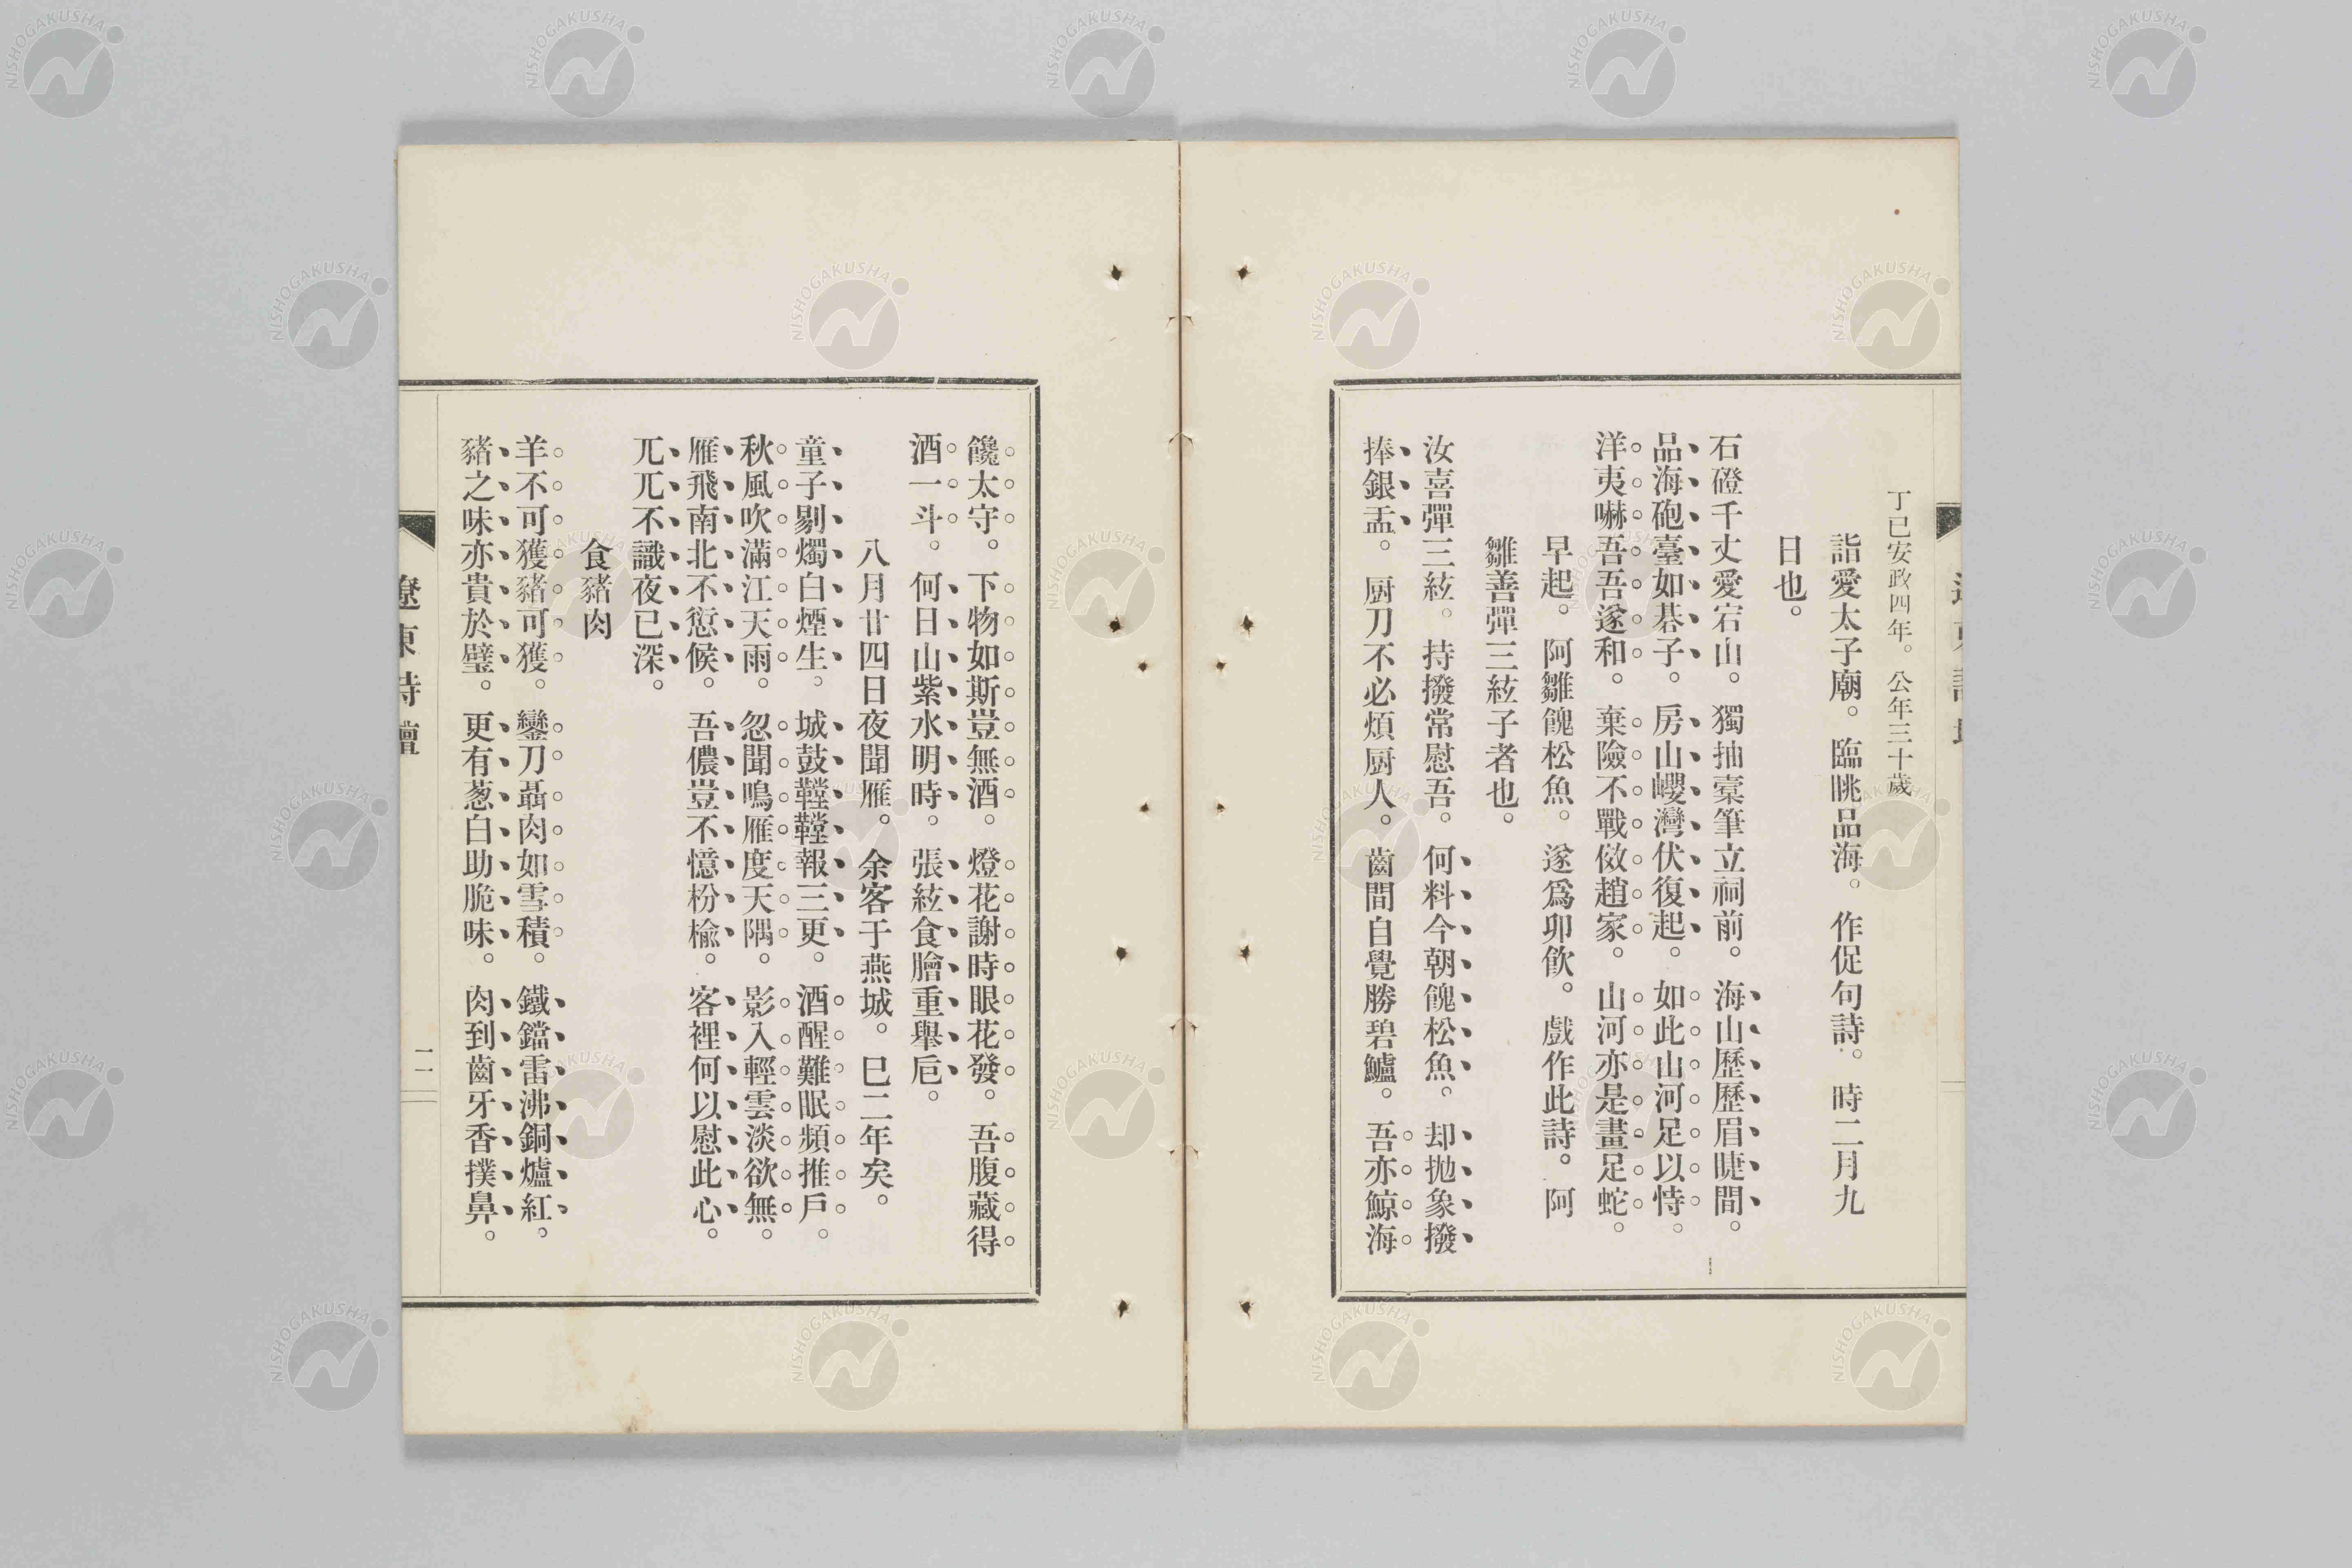 丁巳安政四年。公年三十歲
詣愛太子廟。臨眺品海。作促句詩。時二月九
日也。
石磴千丈愛宕山。獨抽橐筆立祠前。海山歷歷眉睫間。
品海砲臺如碁子。房山巊灣伏復起。如此山河足以恃。
洋夷嚇吾吾遂和。棄險不戰傚趙家。山河亦是畫足蛇。
早起。阿雛餽松魚。遂爲卯飮。戲作此詩。阿
雛善彈三絃子者也。
汝喜彈三絃。持撥常慰吾。何料今朝餽松魚。却抛象撥
捧銀盂。厨刀不必煩厨人。齒間自覺勝碧鱸。吾亦鯨海
饞太守。下物如斯豈無酒。燈花謝時眼花發。吾腹藏得
酒一斗。何日山紫水明時。張絃食膾重擧巵。
八月廿四日夜聞雁。余客于燕城。巳二年矣。
童子剔燭白煙生。城鼓鞺鞺報三更。酒醒難眠頻推戶。
秋風吹滿江天雨。忽聞鳴雁度天隅。影入輕雲淡欲無。
雁飛南北不愆候。吾儂豈不憶枌楡。客裡何以慰此心。
兀兀不識夜已深。
食豬肉
羊不可獲豬可獲。鑾刀聶肉如雪積。鐵鐺雷沸銅爐紅。
豬之味亦貴於璧。更有葱白助脆味。肉到齒牙香撲鼻。
遼東詩壇
二
NISHOGAKUSHA